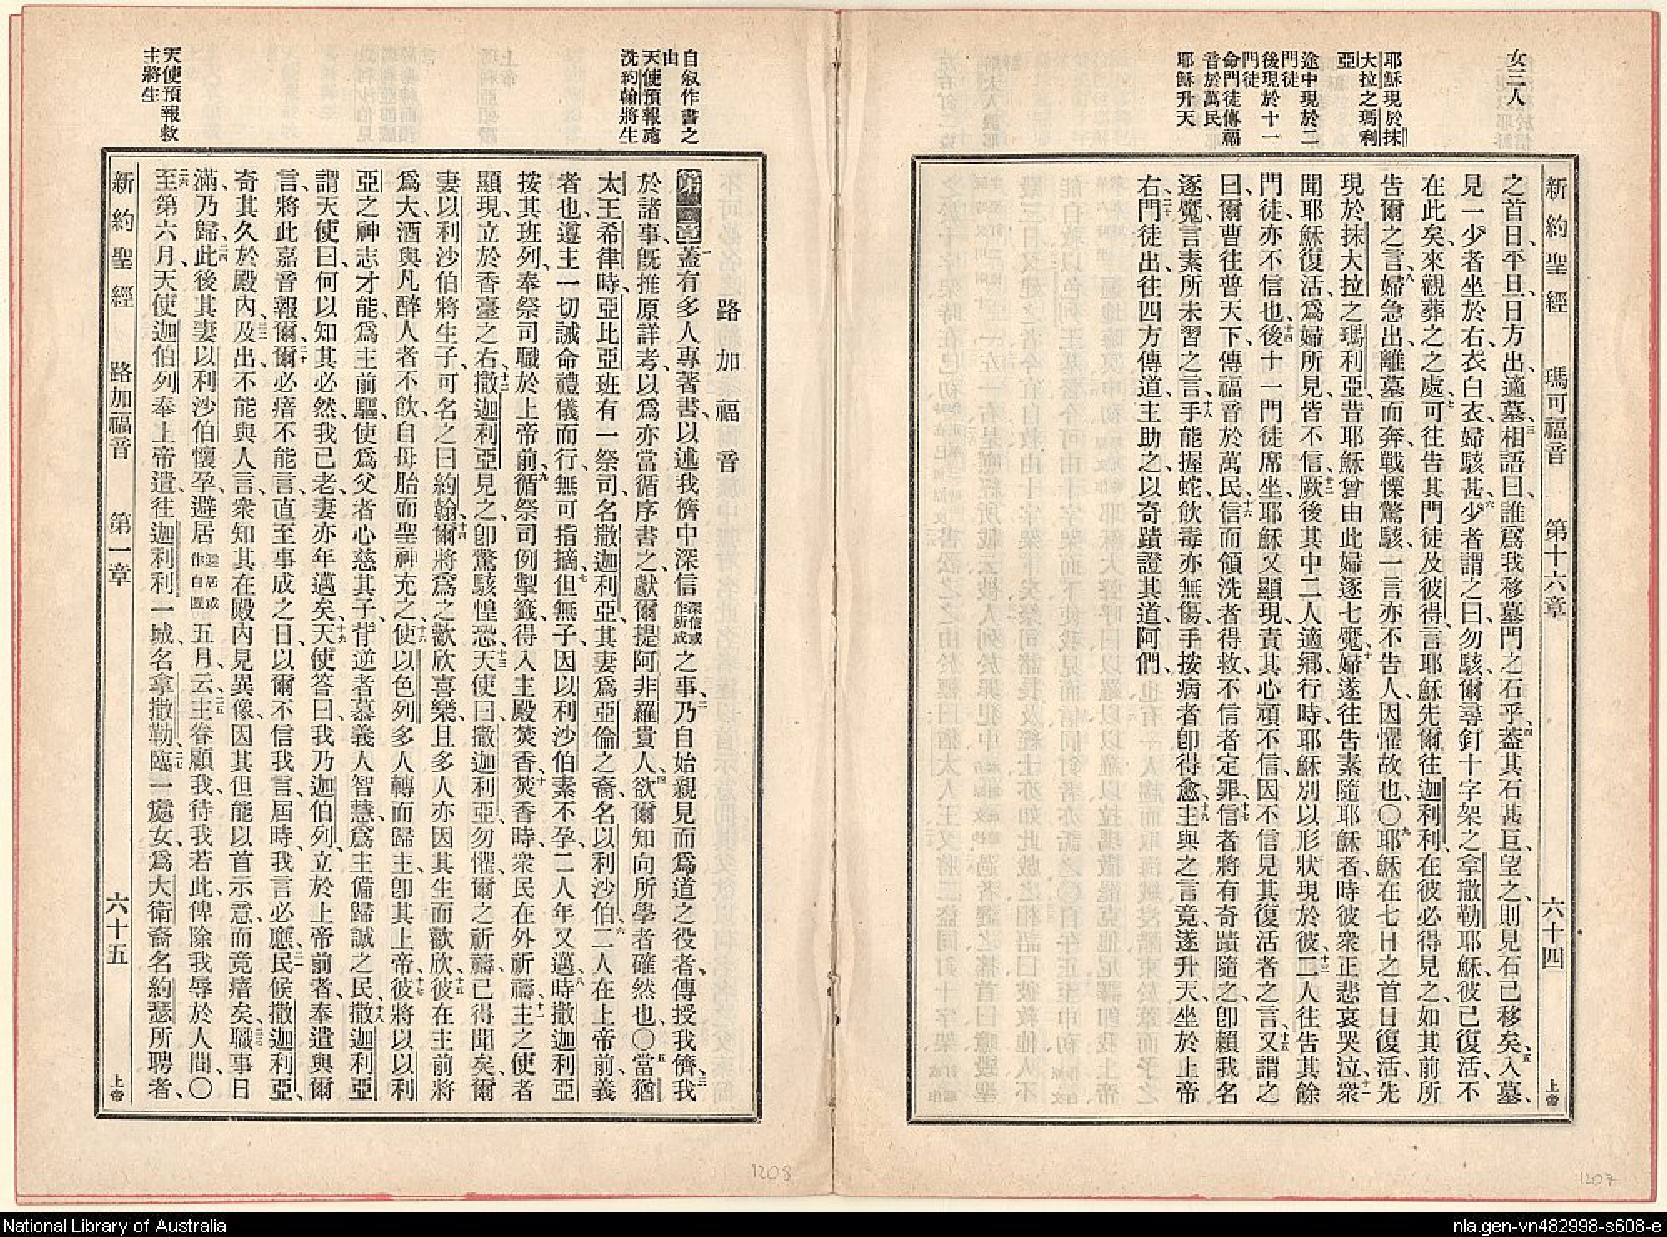 女三人
耶穌現於抹
大拉之瑪利
亞
途中現於二
門徒
後現於十一
門徒
命門徒傳福
音於萬民
耶穌升天
新約聖經 瑪可福音 第十六章 六十四 上帝
之首日、平旦、日方出、適墓、三相語曰、誰爲我移墓門之石乎、四蓋其石甚巨、望之、則見石已移矣、五入墓、
見一少者坐於右、衣白衣、婦駭甚、六少者謂之曰、勿駭、爾尋釘十字架之拿撒勒耶穌、彼已復活、不
在此矣、來觀葬之之處、七可往告其門徒及彼得、言耶穌先爾往迦利利、在彼必得見之、如其前所
告爾之言、八婦急出、離墓而奔、戰慄驚駭、一言亦不告人、因懼故也、〇九耶穌在七日之首日復活、先
現於抹大拉之瑪利亞、昔耶穌曾由此婦逐七魔、十婦遂往告素隨耶穌者、時彼衆正悲哀哭泣、十一衆
聞耶穌復活、爲婦所見、皆不信、十二厥後其中二人適鄉、行時、耶穌別以形狀現於彼、十三二人往告其餘
門徒、亦不信也、十四後十一門徒席坐、耶穌又顯現、責其心頑不信、因不信見其復活者之言、十五又謂之
曰、爾曹往普天下、傳福音於萬民、十六信而領洗者得救、不信者定罪、十七信者將有奇蹟隨之、卽賴我名
逐魔、言素所未習之言、十八手能握蛇、飲毒亦無傷、手按病者卽得愈、十九主與之言竟、遂升天、坐於上帝
右、二十門徒出、往四方傳道、主助之、以奇蹟證其道、阿們、
自叙作書之
由
天使預報施
洗約翰將生
天使預報救
主將生
路加福音
第一章一蓋有多人專著書、以述我儕中深信深信或作所成之事、二乃自始親見而爲道之役者、傳授我儕、三我
於諸事旣推原詳考、以爲亦當循序書之、獻爾提阿非羅貴人、四欲爾知向所學者確然也、〇五當猶
太王希律時、亞比亞班有一祭司、名撒迦利亞、其妻爲亞倫之裔、名以利沙伯、六二人在上帝前、義
者也、遵主一切誡命禮儀而行、無可指摘、七但無子、因以利沙伯素不孕、二人年又邁、八時撒迦利亞
按其班列、奉祭司職於上帝前、九循祭司例掣籤、得入主殿焚香、十焚香時、衆民在外祈禱、十一主之使者
顯現、立於香臺之右、十二撒迦利亞見之、卽驚駭惶恐、十三天使曰、撒迦利亞勿懼、爾之祈禱已得聞矣、爾
妻以利沙伯將生子、可名之曰約翰、十四爾將爲之歡欣喜樂、且多人亦因其生而歡欣、十五彼在主前將
爲大、酒與凡醉人者不飲、自母胎而聖神充之、十六使以色列多人轉而歸主、卽其上帝、十七彼將以以利
亞之神志才能、爲主前驅、使爲父者心慈其子、背逆者慕義人智慧、爲主備歸誠之民、十八撒迦利亞
謂天使曰、何以知其必然、我已老、妻亦年邁矣、十九天使答曰、我乃迦伯列、立於上帝前者、奉遣與爾
言、將此嘉音報爾、二十爾必瘖不能言、直至事成之日、以爾不信我言、屆時我言必應、二一民候撒迦利亞、
奇其久於殿內、二二及出、不能與人言、衆知其在殿內見異像、因其但能以首示意、而竟瘖矣、二三職事日
滿、乃歸、二四此後其妻以利沙伯懷孕、避居避居或作自匿五月、云、二五主眷顧我、待我若此、俾除我辱於人間、〇
二六至第六月、天使迦伯列奉上帝遣、往迦利利一城、名拿撒勒、二七臨一處女、爲大衛裔名約瑟所聘者、
新約聖經 路加福音 第一章 六十五 上帝
1208
1207
National Library of Australia
nla.gen-vn482998-s608-e